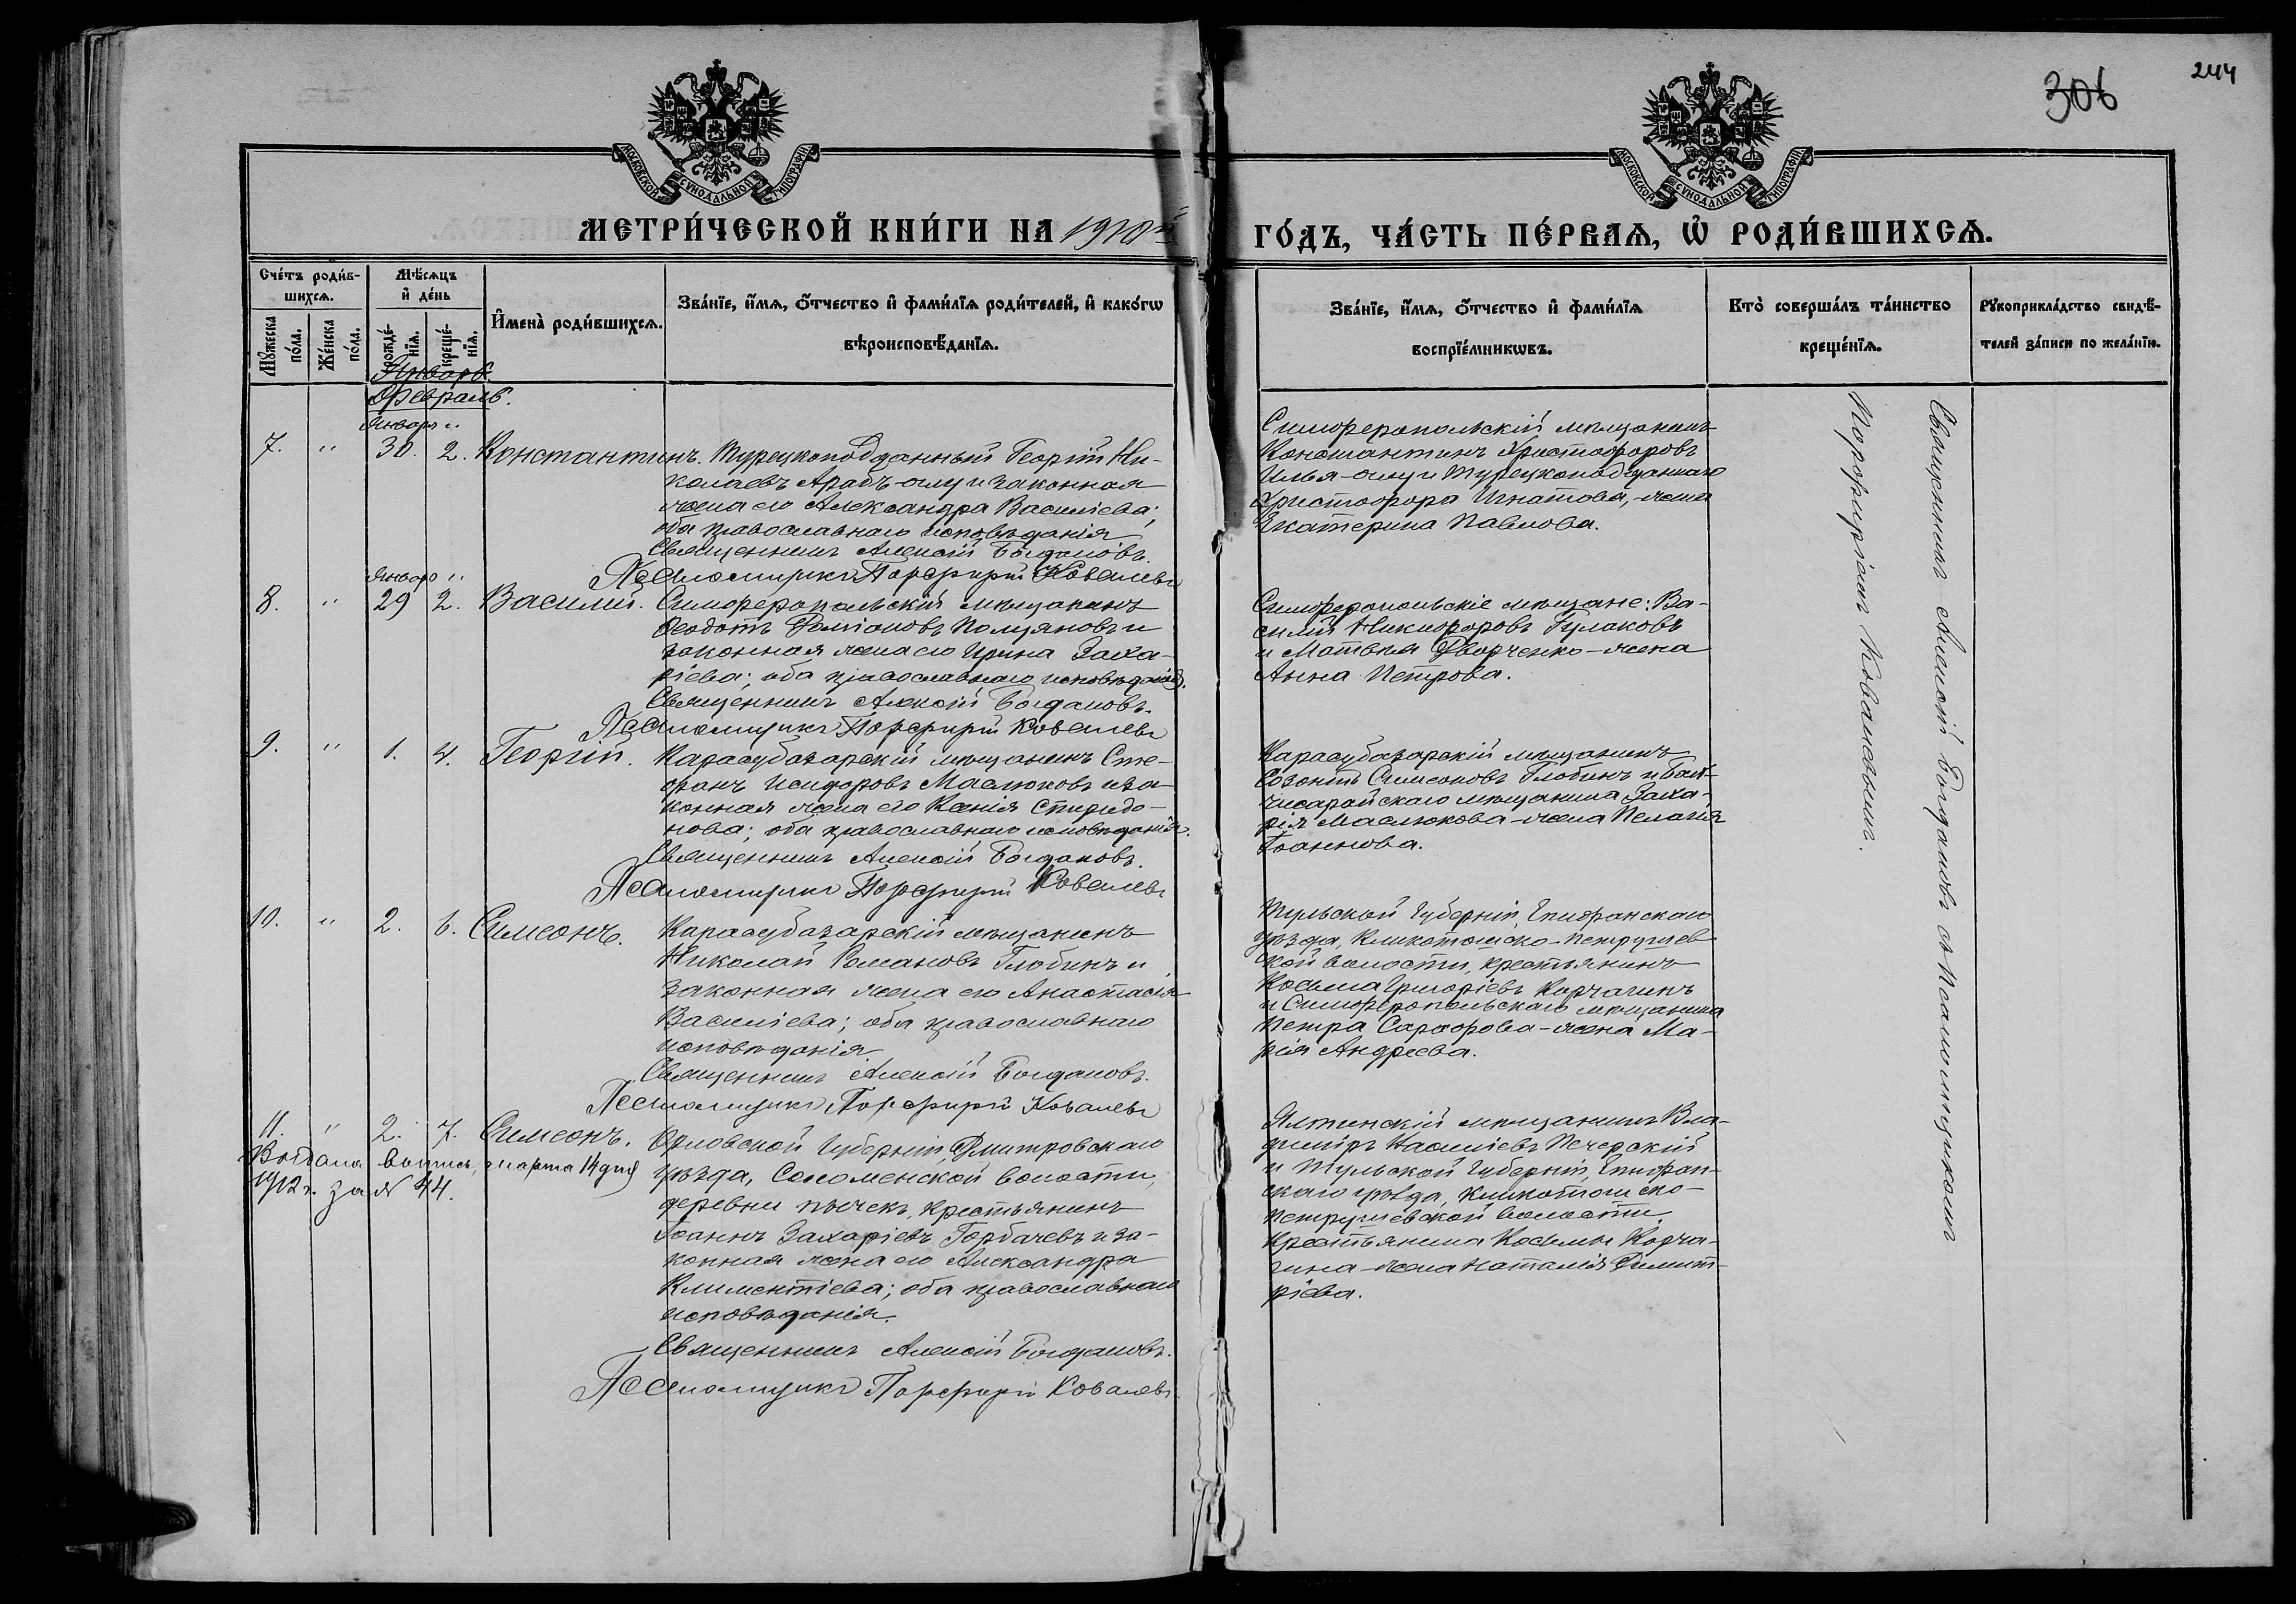 306
244
МОСКОВСКОЙ СѴНОДАЛЬНОЙ ТИПОГРАФІИ
МОСКОВСКОЙ СѴНОДАЛЬНОЙ ТИПОГРАФІИ
МЕТРИ́ЧЕСКОЙ КНИ́ГИ НА 1910й
ГО́ДЪ, ЧА́СТЬ ПЕ́РВАѦ, Ѡ҆ РОДИ́ВШИХСѦ.
Сче́тъ роди́в-
шихсѧ.
Мꙋ́жеска по́ла.
Же́нска по́ла.
Мѣ́сѧцъ
и҆ де́нь
рожде́-нїѧ.
креще́-нїѧ.
И҆мена̀ роди́вшихсѧ.
Зва́нїе, и҆́мѧ, ѻ҆́тчество и҆ фами́лїѧ роди́телей, и҆ како́гѡ
вѣроисповѣ́данїѧ.
Зва́нїе, и҆́мѧ, ѻ҆́тчество и҆ фами́лїѧ
воспрїе́мникѡвъ.
Кто̀ соверша́лъ та́инство
креще́нїѧ.
Рꙋкоприкла́дство свидѣ́-
телей за́писи по жела́нїю.
Январь.
Февраль.
Января "
7. " 30. 2. Константинъ. Турецкоподданный Георгій Ни-
колаевъ Арабъ-оглу и законная
жена его Александра Василіева;
оба православнаго исповѣданія
Священникъ Алексій Богдановъ.
Псаломщикъ Порфирій Ковалевъ
Симферопольскій мѣщанинъ
Константинъ Христофоровъ
Илья-оглу и Турецкоподданнаго
Христофора Игнатова, жена
Екатерина Павлова.
Января "
8. " 29 2. Василій. Симферопольскій мѣщанинъ
Ѳеодотъ Полуяновъ и
законная жена его Ирина Заха-
ріева; оба православнаго исповѣданія.
Священникъ Алексій Богдановъ.
Псаломщикъ Порфирій Ковалевъ
Симферопольскіе мѣщане: Ва-
силій Никифоровъ Гулаковъ
и Матвѣя Дворченко-жена
Анна Петрова.
9. " 1. 4. Георгій. Карасубазарскій мѣщанинъ Сте-
фанъ Исидоровъ Маслюковъ и за-
конная жена его Ксенія Спиридо-
нова; оба православнаго исповѣданія.
Священникъ Алексій Богдановъ.
Псаломщикъ Порфирій Ковалевъ
Карасубазарскій мѣщанинъ
Созонтъ Симеоновъ Глобинъ и Бах-
чисарайскаго мѣщанина Заха-
рія Маслюкова-жена Пелагія
Іоаннова.
10. " 2. 6. Симеонъ. Карасубазарскій мѣщанинъ
Николай Романовъ Глобинъ и
законная жена его Анастасія
Василіева; оба православнаго
исповѣданія
Священникъ Алексій Богдановъ.
Псаломщикъ Порфирій Ковалевъ
Тульской губерніи, Епифанскаго
уѣзда, Петрушев-
ской волости, крестьянинъ
Косьма Григоріевъ Корчагинъ
и Симферопольскаго мѣщанина
Петра Сафорова-жена Ма-
рія Андреева.
11. " 2. 7. Симеонъ. Орловской губерніи, Дмитровскаго
уѣзда, Соломенской волости,
деревни крестьянинъ
Іоаннъ Захаріевъ Горбачевъ и за-
конная жена его Александра
Климентіева; оба православнаго
исповѣданія.
Священникъ Алексій Богдановъ.
Псаломщикъ Порфирій Ковалевъ.
Выдана выпись, марта 14 дня
1912 г. за № 44.
Ялтинскій мѣщанинъ Вла-
диміръ Василіевъ Печерскій
и Тульской губерніи, Епифан-
скаго уѣзда,
Петрушевской волости
крестьянина Косьмы Корча-
гина-жена Наталія Димит-
ріева.
Священникъ Алексій Богдановъ съ Псаломщикомъ
Порфиріемъ Ковалевымъ.